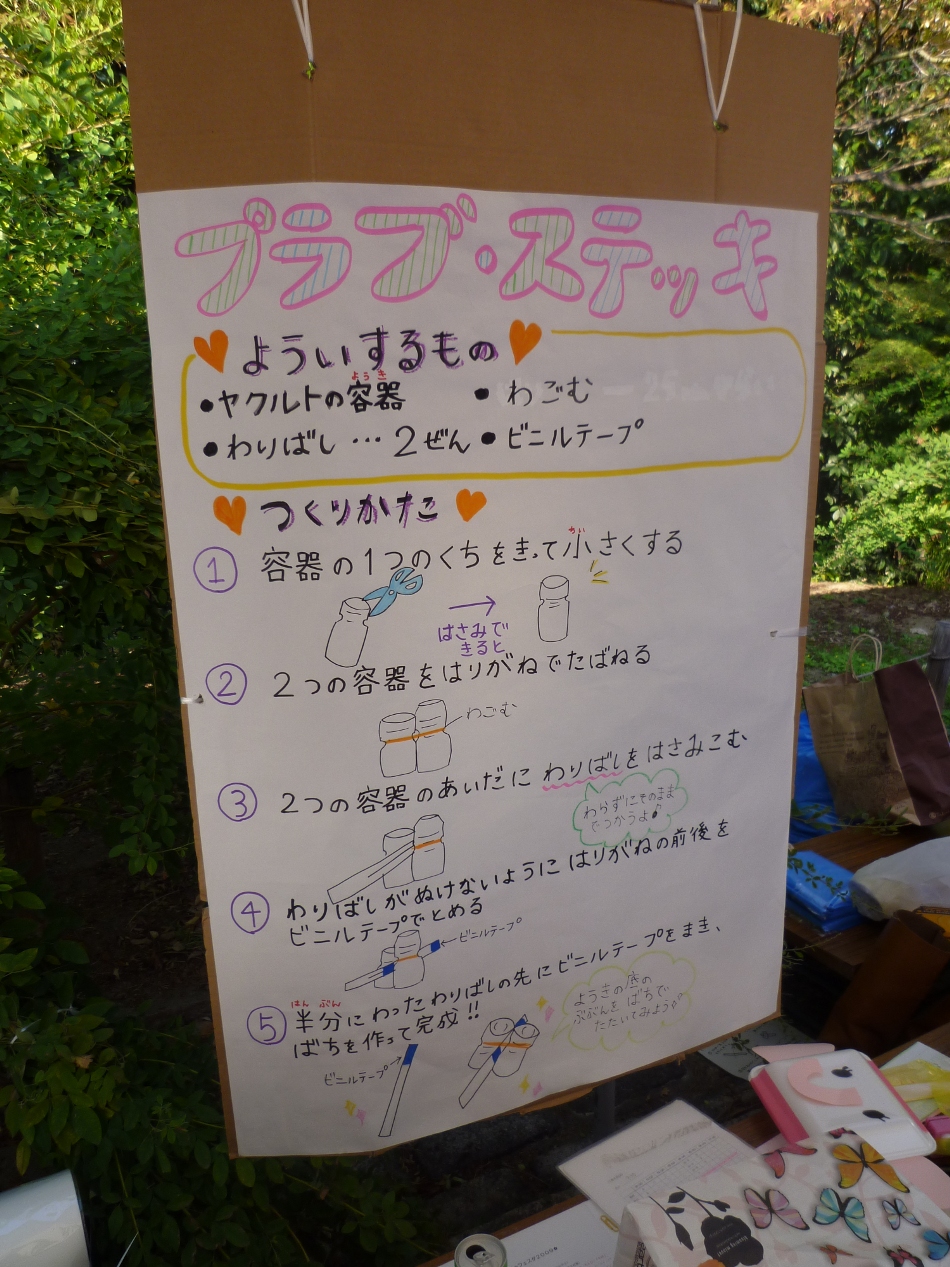 プラブ・ステッキ
よういするもの
・ヤクルトの容器
ようき
・わごむ
・わりばし…2ぜん
・ビニルテープ
つくりかた
① 容器の1つのくちをきって小さくする
ちい
はさみで
きると
② 2つの容器をはりがねでたばねる
わごむ
③ 2つの容器のあいだにわりばしをはさみこむ
わらずにそのまま
でつかうよ♪
④ わりばしがぬけないようにはりがねの前後を
ビニルテープでとめる
ビニルテープ
⑤ 半分にわったわりばしの先にビニルテープをまき、
はん ぶん
ばちを作って完成!!
ようきの底の
ぶぶんをばちで
たたいてみよう♪
ビニルテープ